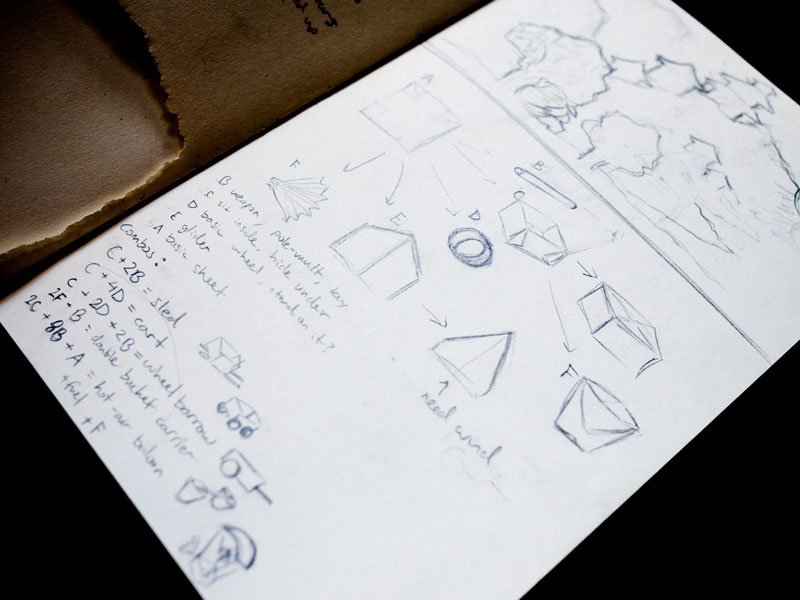 up
A
F
B
C
E
D
F
need wind
B weapon, pole vault, key
C sit inside, hide under
D basic wheel, stand on it?
E glider
A basic sheet
Combos:
C + 2B = sled
C + 4D = cart
C + 2D + 2B = wheel barrow
2F + B = double bucket carrier
2C + 8B + A = hot-air baloon
+ fuel + F